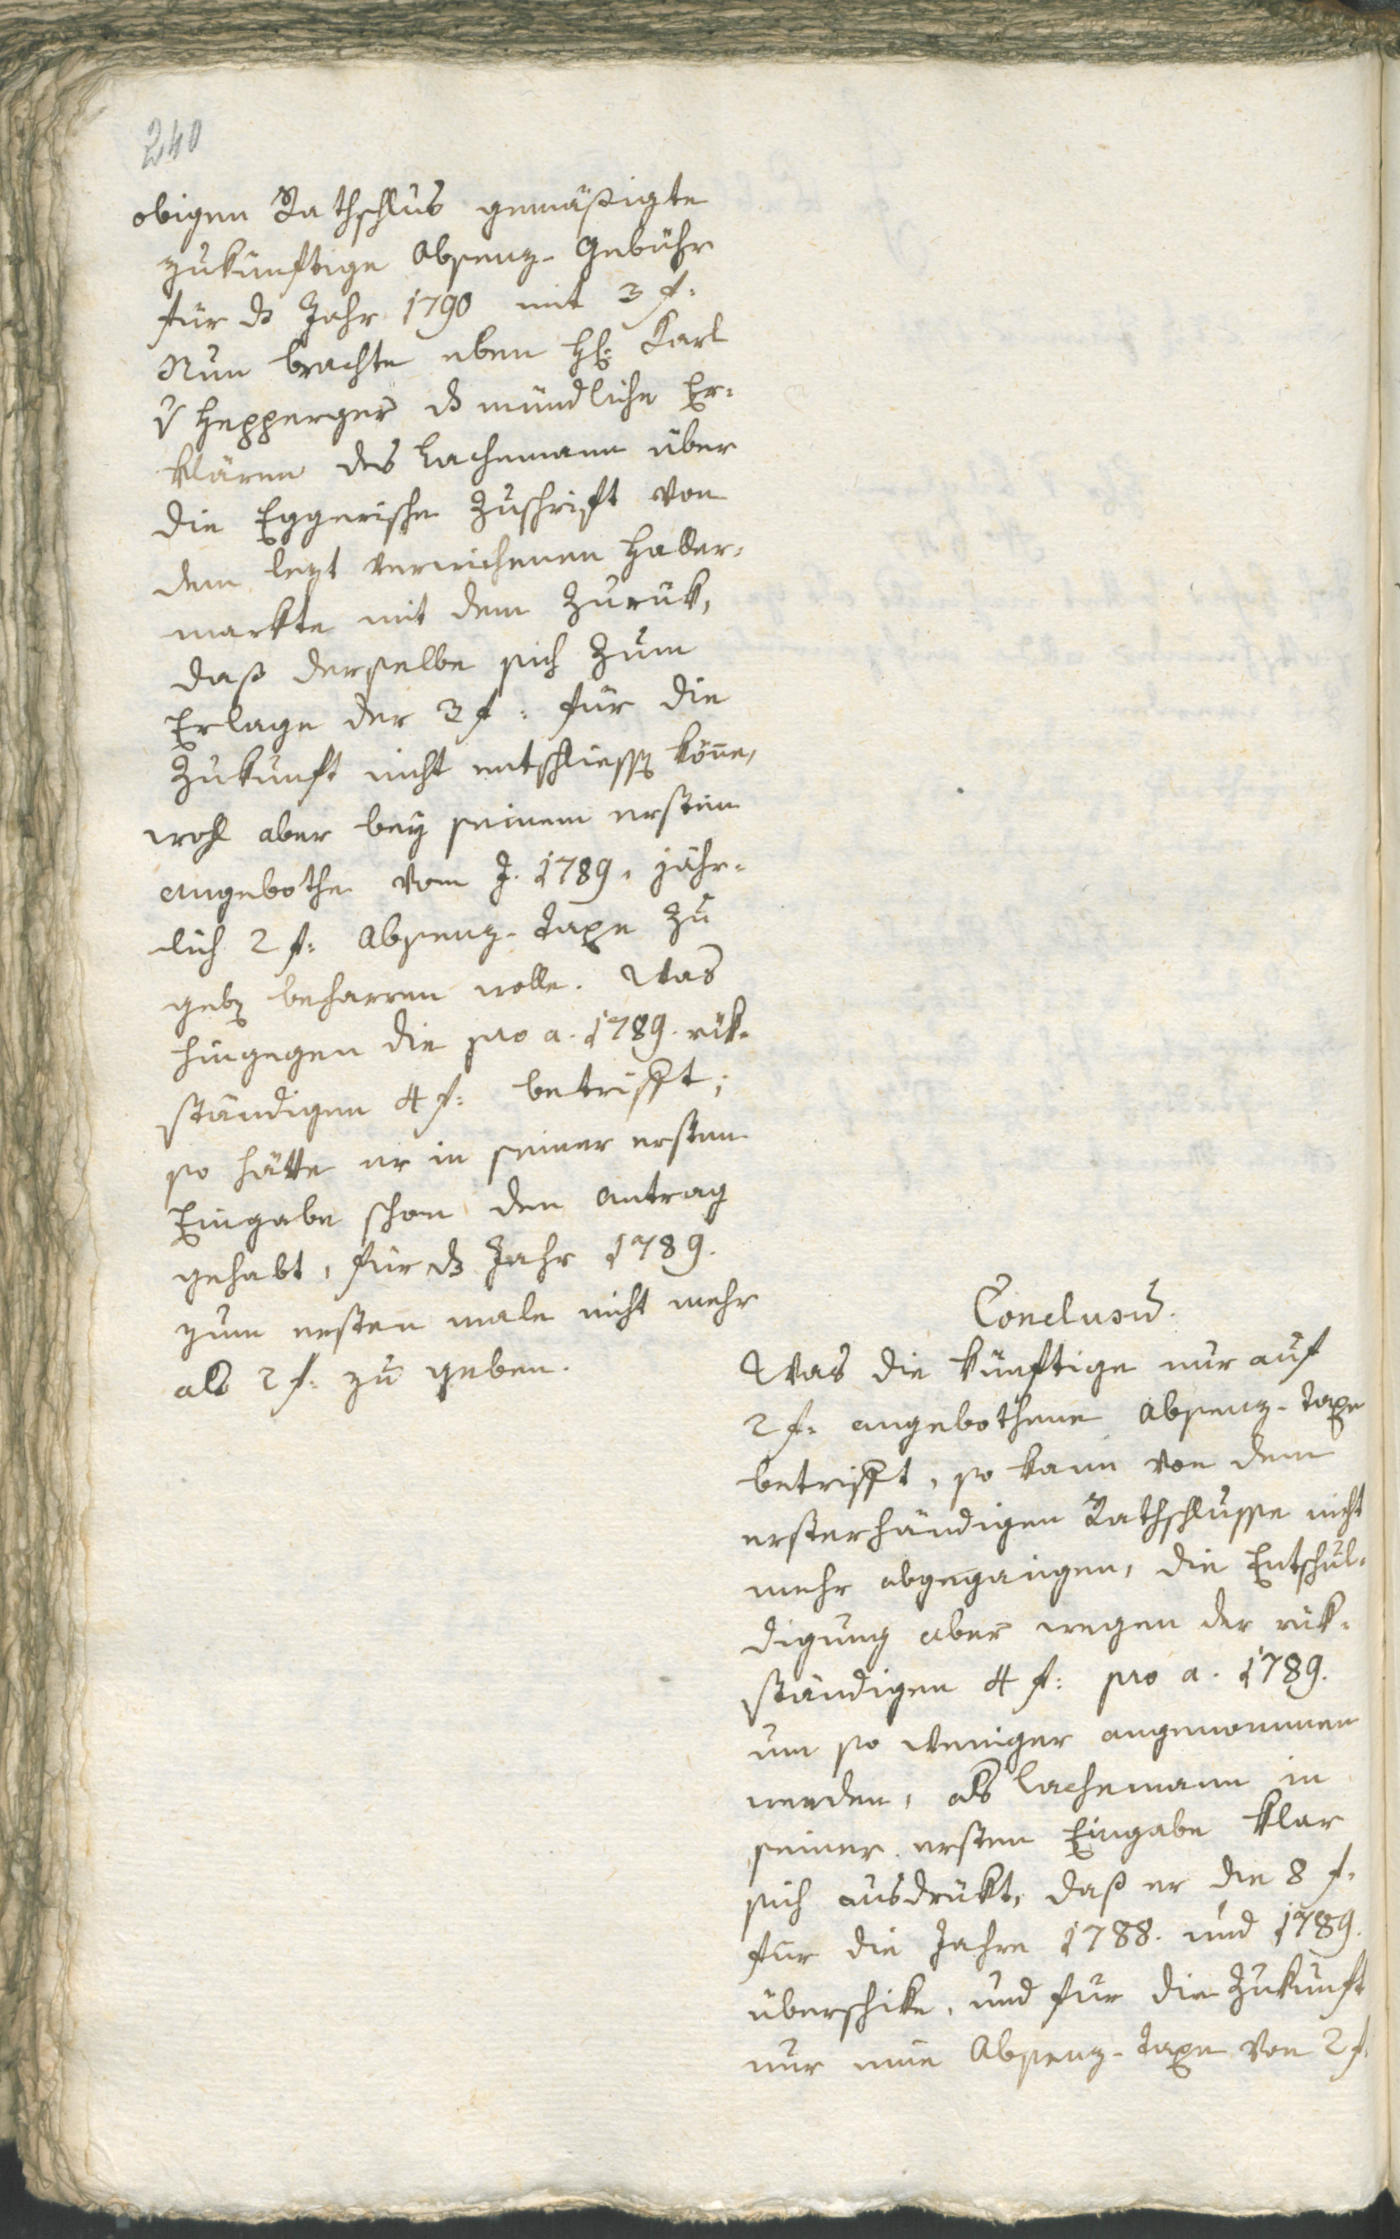 240
obigen Rathschlus gemäßigte
zukünftige Absenz-Gebühr
für ds Jahr 1790 mit 3 f:
Nun brachte eben H: Karl
v Hepperger ds mündliche Er=
klären des Lachemann über
die Eggerische Zuschrift von
dem lezt verwichenen Haller=
markte mit dem Zurük,
daß derselbe sich zum
Erlage der 3 f: für die
Zukunft nicht entschliessen könne,
wohl aber bey seinem ersten
angebothe vom J. 1789, jähr=
lich 2 f: Absenz-Taxe zu
geben beharren wolle. Was
hingegen die pro a. 1789. rük=
ständigen 4 f: betrifft;
so hätte er in seiner ersten
Eingabe schon den Antrag
gehabt, für ds Jahr 1789.
zum ersten male nicht mehr
als 2 f: zu geben.
Conclusum.
Was die künftige nur auf
2 f: angebothene Absenz-Taxe
betrifft, so kann von dem
ersterhändigen Rathschlusse nicht
mehr abgegangen, die Entschul=
digung aber wegen der rük=
ständigen 4 f: pro a. 1789.
um so weniger angenommen
werden, als Lachemann in
seiner ersten Eingabe klar
sich ausdrükt, daß er die 8 f.
für die Jahre 1788. und 1789.
überschike, und für die Zukunft
nur eine Absenz-Taxe von 2 f.